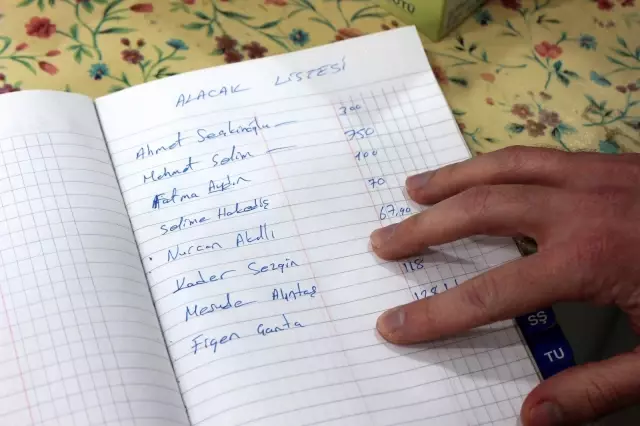 UTU
ALACAK LİSTESİ
Ahmet Serbinoğlu — 300
Mehmet Selim — 750
Fatma Aydın 100
Selime 70
Nurcan Akıllı 67,90
Kader Sezgin
Mesude Alıntaş 118
Figen Ganta
SŞ
TU